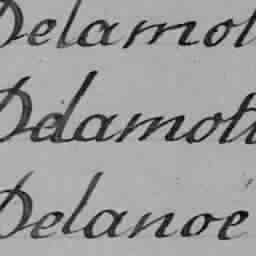 Delamot
Delamott
Delanoë